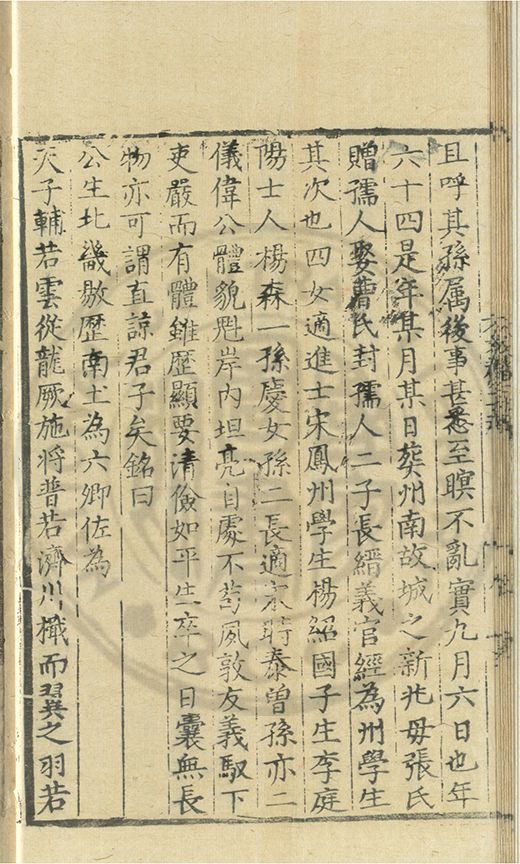 且呼其孫属後事甚悉至瞑不亂實九月六日也年
六十四是年某月某日葬州南故城之新兆母張氏
贈孺人娶曹氏封孺人二子長縉義官經為州學生
其次也四女適進士宋鳳州學生楊紹國子生李庭
陽士人楊森一孫慶女孫二長適宋時泰曾孫亦二
儀偉公體貌魁岸内坦亮自處不苟夙敦友義馭下
吏嚴而有體雖歷顯要清儉如平生卒之日囊無長
物亦可謂直諒君子矣銘曰
公生北畿敭歷南土為六卿佐為
天子輔若雲從龍厥施将普若濟川檝而翼之羽若